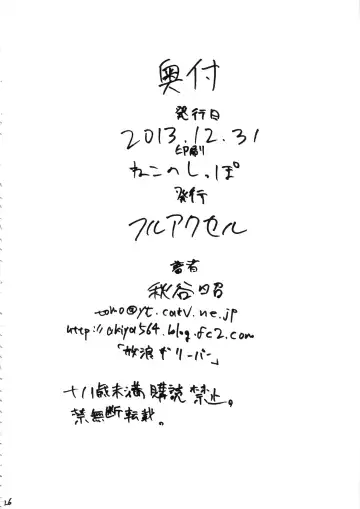 奥付
発行日
2013.12.31
印刷
ねこのしっぽ
発行
フルアクセル
著者
秋谷昭
toho@yt.catv.ne.jp
http://akiya564.blog.fc2.com
「放浪ギリーバー」
十八歳未満購読禁止。
禁無断転載。
26